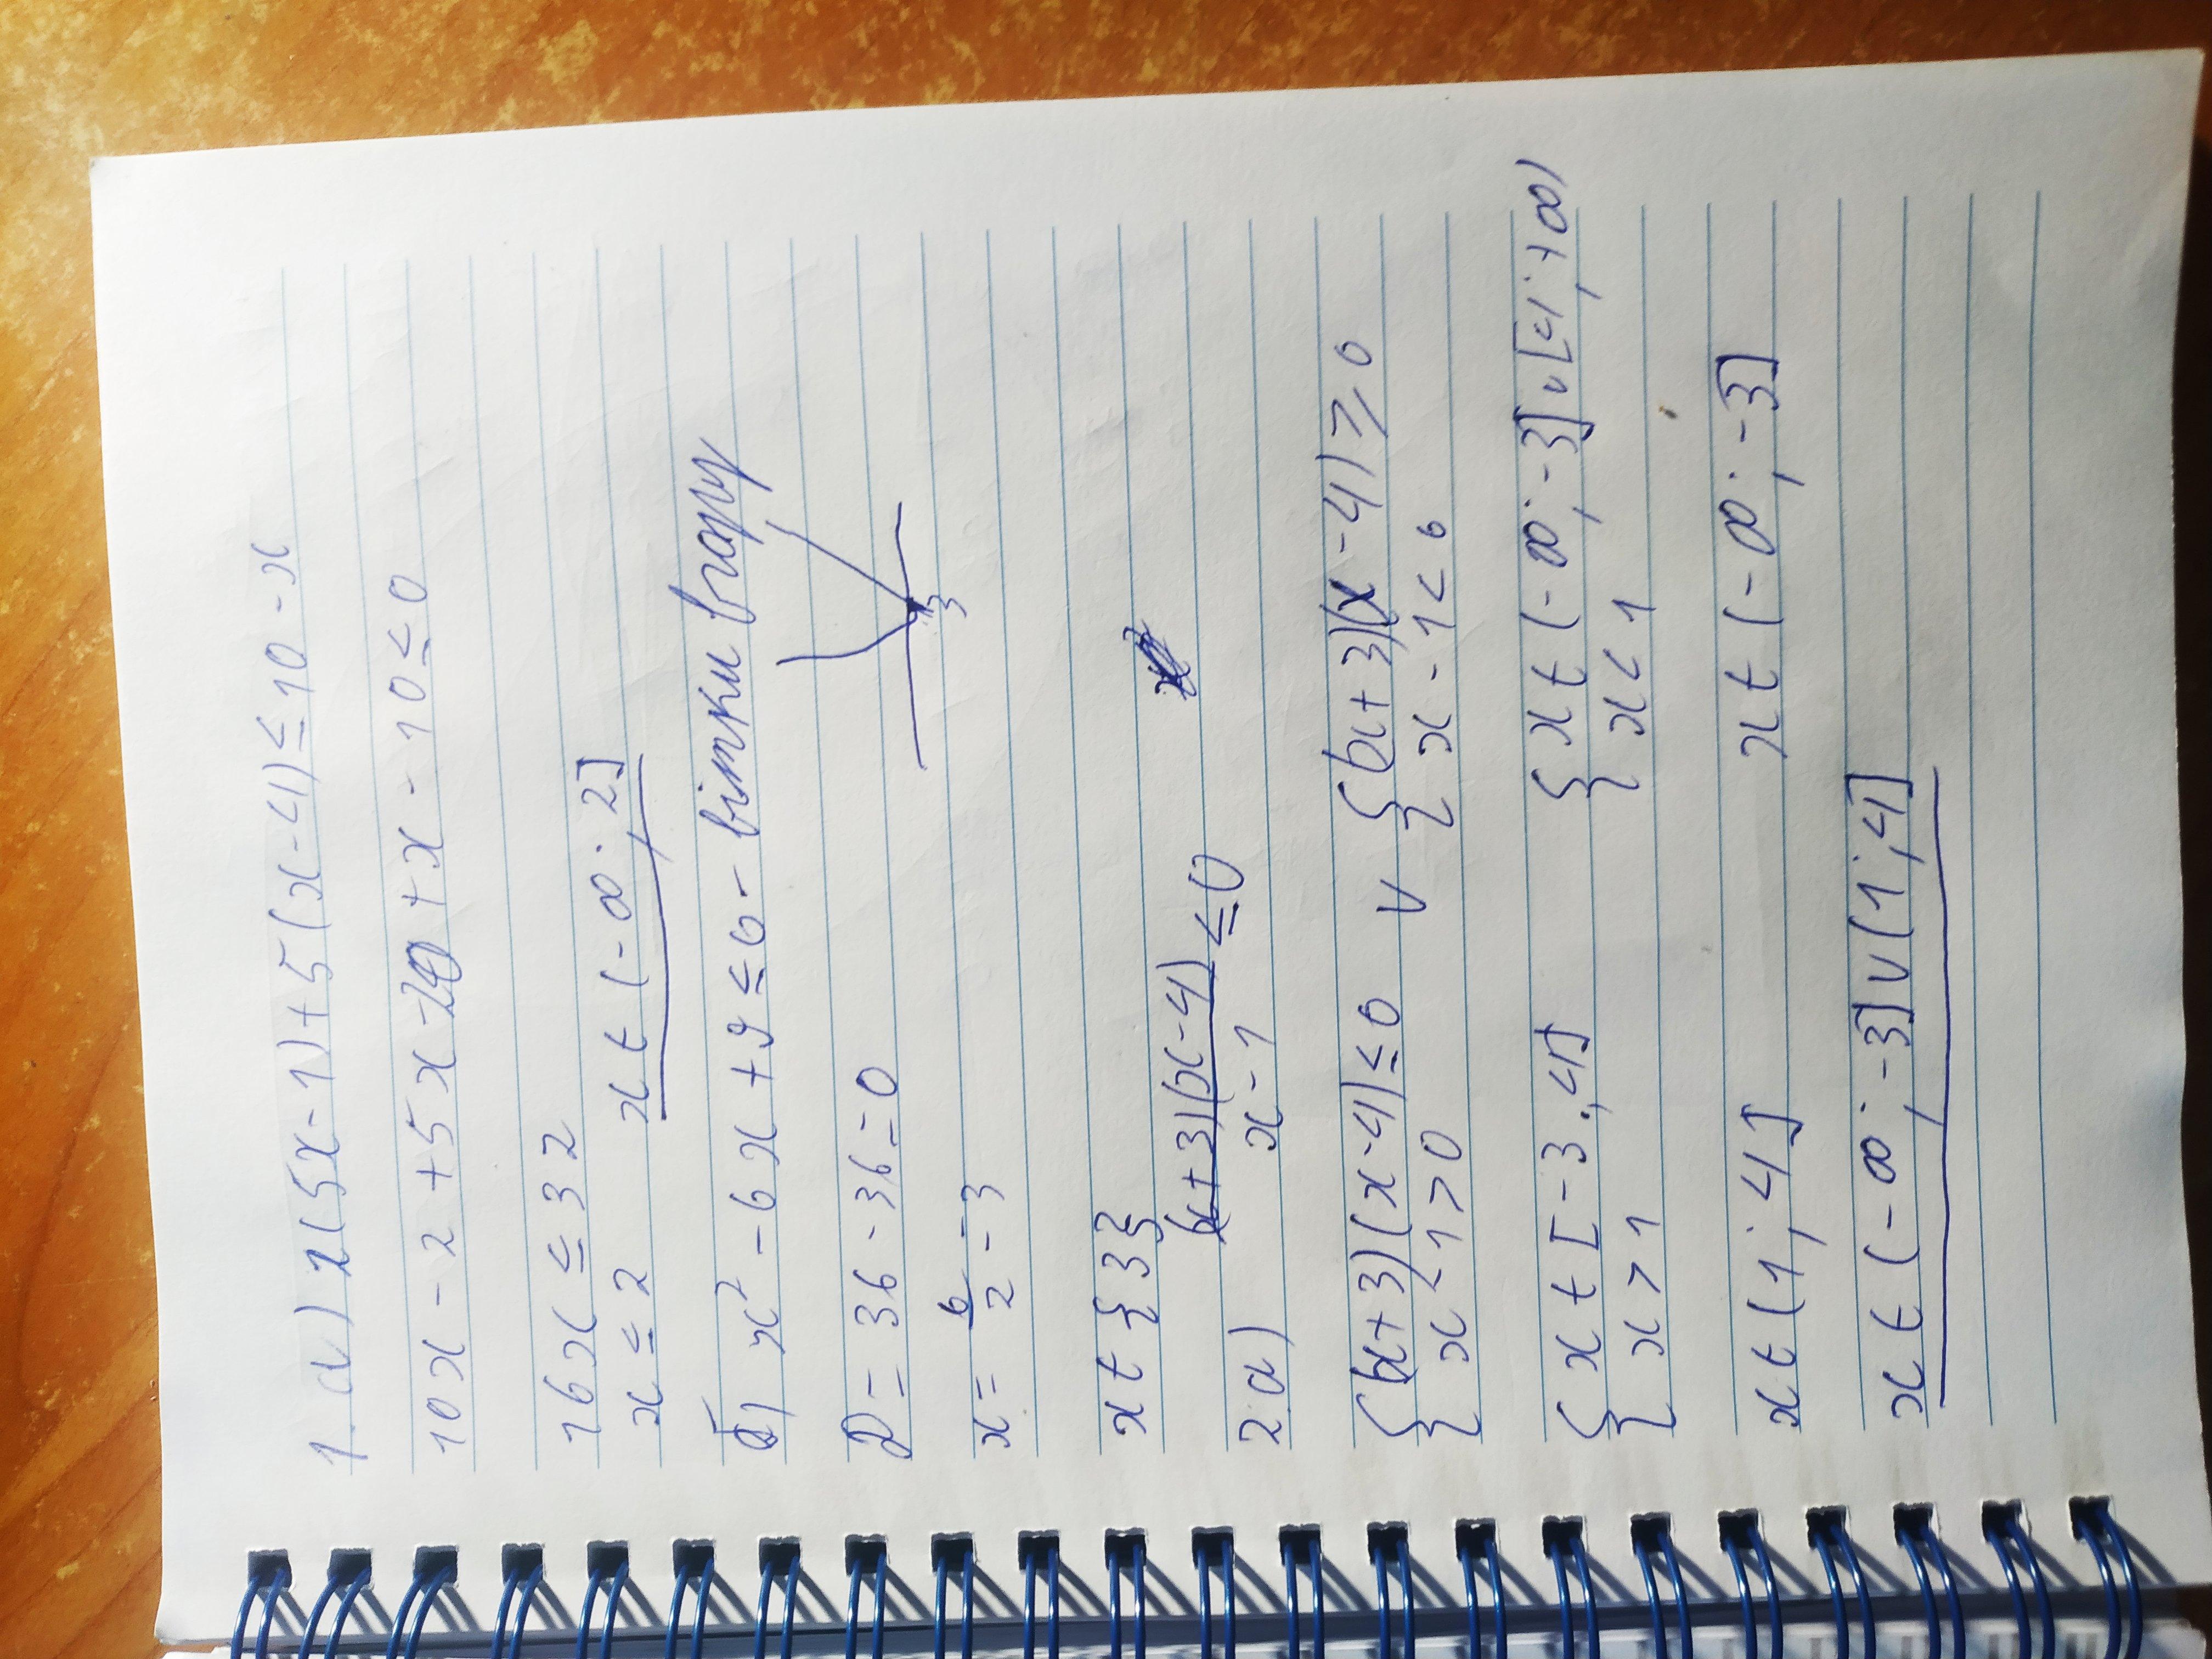 1. а) 2(5x-1)+5(x-4)≤10-x
10x-2+5x-20+x-10≤0
16x≤32
x≤2 x∈(-∞;2]
б) x²-6x+9≤0 - вітки вгору
D=36-36=0
x=6/2=3
3
x∈{3}
2.а) (x+3)(x-4)/x-1≤0
{(x+3)(x-4)≤0 x-1>0 V {(x+3)(x-4)≥0 x-1<0
{x∈[-3;4] x>1 {x∈(-∞;-3]∨[4;+∞) x<1
x∈(1;4] x∈(-∞;-3]
x∈(-∞;-3]∨(1;4]